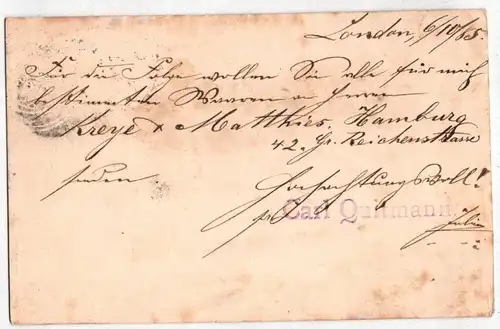 London, 6/10/85.
Für die Folge wollen Sie alle für mich
bestimmten Waaren an Herren
Kreye & Matthies, Hamburg
42. Gr. Reichenstrasse
senden.
Hochachtungsvoll!
Carl Quitmann